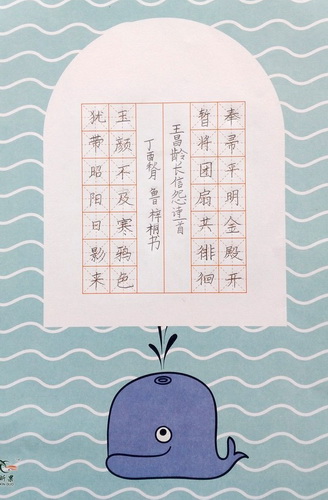 奉帚平明金殿开
暂将团扇共徘徊
王昌龄长信怨诗一首
丁酉 鲁梓桐书
玉颜不及寒鸦色
犹带昭阳日影来